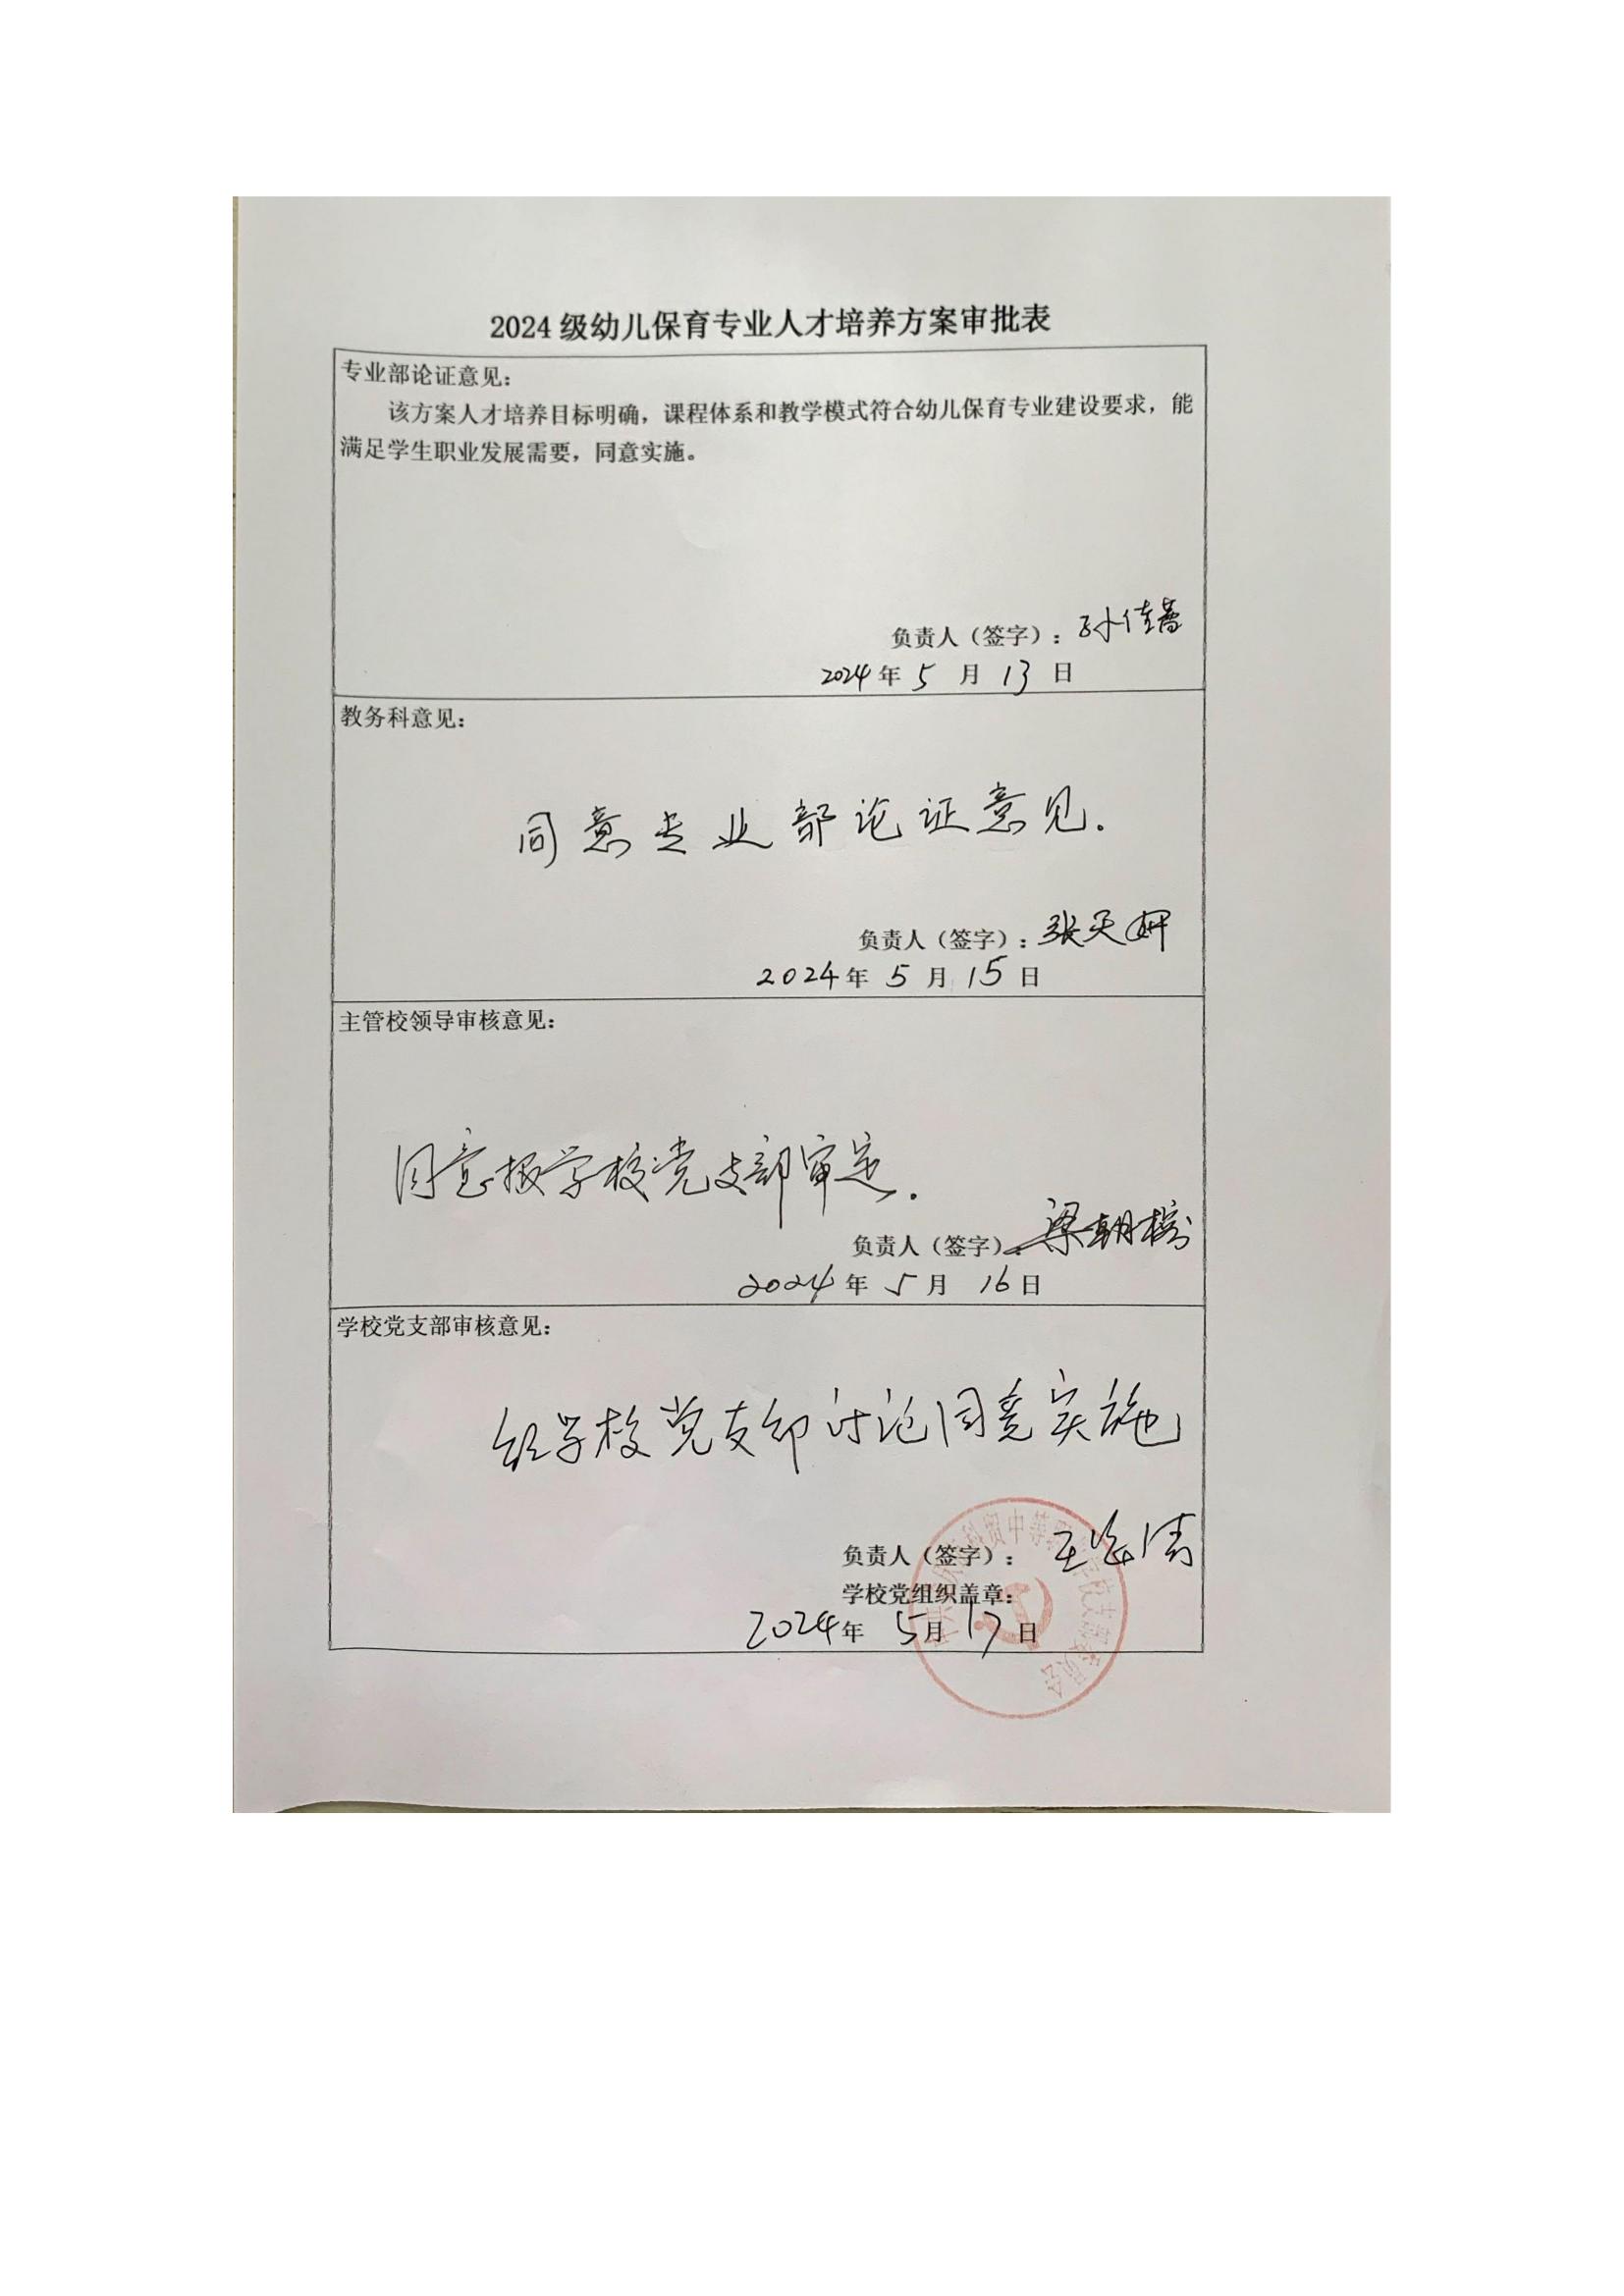 2024级幼儿保育专业人才培养方案审批表
专业部论证意见：
该方案人才培养目标明确，课程体系和教学模式符合幼儿保育专业建设要求，能
满足学生职业发展需要，同意实施。
负责人（签字）：孙佳蔷
2024年 5 月 13 日
教务科意见：
同意专业部论证意见.
负责人（签字）：张天妍
2024年 5 月 15 日
主管校领导审核意见：
同意报学校党支部审定.
负责人（签字）：梁朝
2024年 5 月 16 日
学校党支部审核意见：
经学校党支部讨论同意实施
负责人（签字）：王
学校党组织盖章：
2024年 5月 17日
科贸中等 学校支部委员会